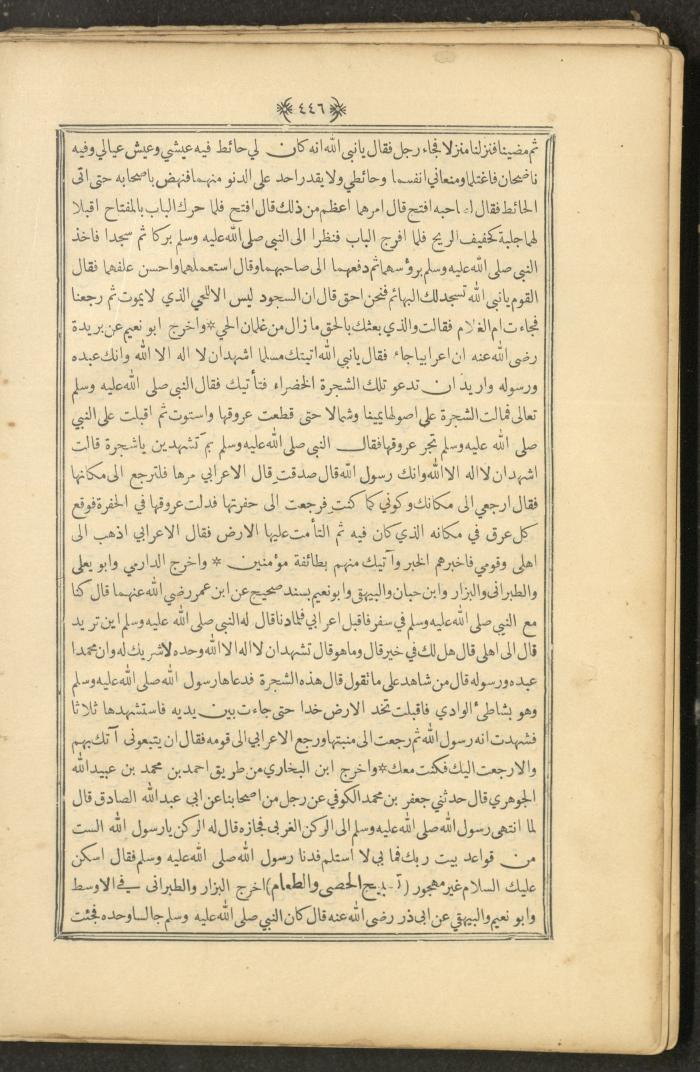 ٤٤٦
ثم مضينا فنزلنا منزلا فجاء رجل فقال يا نبي الله انه كان لي حائط فيه عيشي وعيش عيالي وفيه
ناضحان فاغتلما ومنعاني انفسهما وحائطي ولا يقدر احد على الدنو منهما فنهض باصحابه حتى اتى
الحائط فقال لصاحبه افتح قال امرهما اعظم من ذلك قال افتح فلما حرك الباب بالمفتاح اقبلا
لهما جلبة كحفيف الريح فلما افرج الباب فنظرا الى النبي صلى الله عليه وسلم بركا ثم سجدا فاخذ
النبي صلى الله عليه وسلم برؤسهما ثم دفعهما الى صاحبهما وقال استعملهما واحسن علفهما فقال
القوم يا نبي الله تسجد لك البهائم فنحن احق قال ان السجود ليس الا للحي الذي لا يموت ثم رجعنا
فجاءت ام الغلام فقالت والذي بعثك بالحق ما زال من غلمان الحي * واخرج ابو نعيم عن بريدة
رضى الله عنه ان اعرابيا جاء فقال يا نبي الله اتيتك مسلما اشهد ان لا اله الا الله وانك عبده
ورسوله واريد ان تدعو تلك الشجرة الخضراء فتأتيك فقال النبي صلى الله عليه وسلم
تعالى فمالت الشجرة على اصولها يمينا وشمالا حتى قطعت عروقها واستوت ثم اقبلت على النبي
صلى الله عليه وسلم تجر عروقها فقال النبي صلى الله عليه وسلم بم تشهدين يا شجرة قالت
اشهد ان لا اله الا الله وانك رسول الله قال صدقت قال الاعرابي مرها فلترجع الى مكانها
فقال ارجعي الى مكانك وكوني كما كنت فرجعت الى حفرتها فدلت عروقها في الحفرة فوقع
كل عرق في مكانه الذي كان فيه ثم التأمت عليها الارض فقال الاعرابي اذهب الى
اهلى وقومي فاخبرهم الخبر وآتيك منهم بطائفة مؤمنين * واخرج الدارمي وابو يعلى
والطبرانى والبزار وابن حبان والبيهقى وابو نعيم بسند صحيح عن ابن عمر رضي الله عنهما قال كنا
مع النبي صلى الله عليه وسلم في سفر فاقبل اعرابي فلما دنا قال له النبي صلى الله عليه وسلم اين تريد
قال الى اهلى قال هل لك في خير قال وما هو قال تشهد ان لا اله الا الله وحده لا شريك له وان محمدا
عبده ورسوله قال من شاهد على ما تقول قال هذه الشجرة فدعاها رسول الله صلى الله عليه وسلم
وهو بشاطئ الوادي فاقبلت تخد الارض خدا حتى جاءت بين يديه فاستشهدها ثلاثا
فشهدت انه رسول الله ثم رجعت الى منبتها ورجع الاعرابي الى قومه فقال ان يتبعونى آتك بهم
والا رجعت اليك فكنت معك * واخرج ابن البخاري من طريق احمد بن محمد بن عبيد الله
الجوهري قال حدثني جعفر بن محمد الكوفي عن رجل من اصحابنا عن ابي عبد الله الصادق قال
لما انتهى رسول الله صلى الله عليه وسلم الى الركن الغربى فجازه قال له الركن يا رسول الله الست
من قواعد بيت ربك فما بي لا استلم فدنا رسول الله صلى الله عليه وسلم فقال اسكن
عليك السلام غير مهجور (تسبيح الحصى والطعام) اخرج البزار والطبرانى في الاوسط
وابو نعيم والبيهقي عن ابى ذر رضى الله عنه قال كان النبي صلى الله عليه وسلم جالسا وحده فجئت